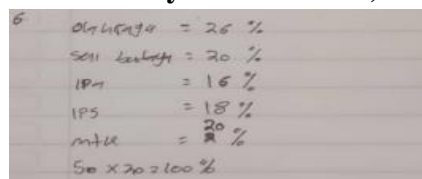 6
Olahraga = 26 %
Seni = 20 %
IPA = 16 %
IPS = 18 %
mtk = 20 %
50 x 20 = 100 %